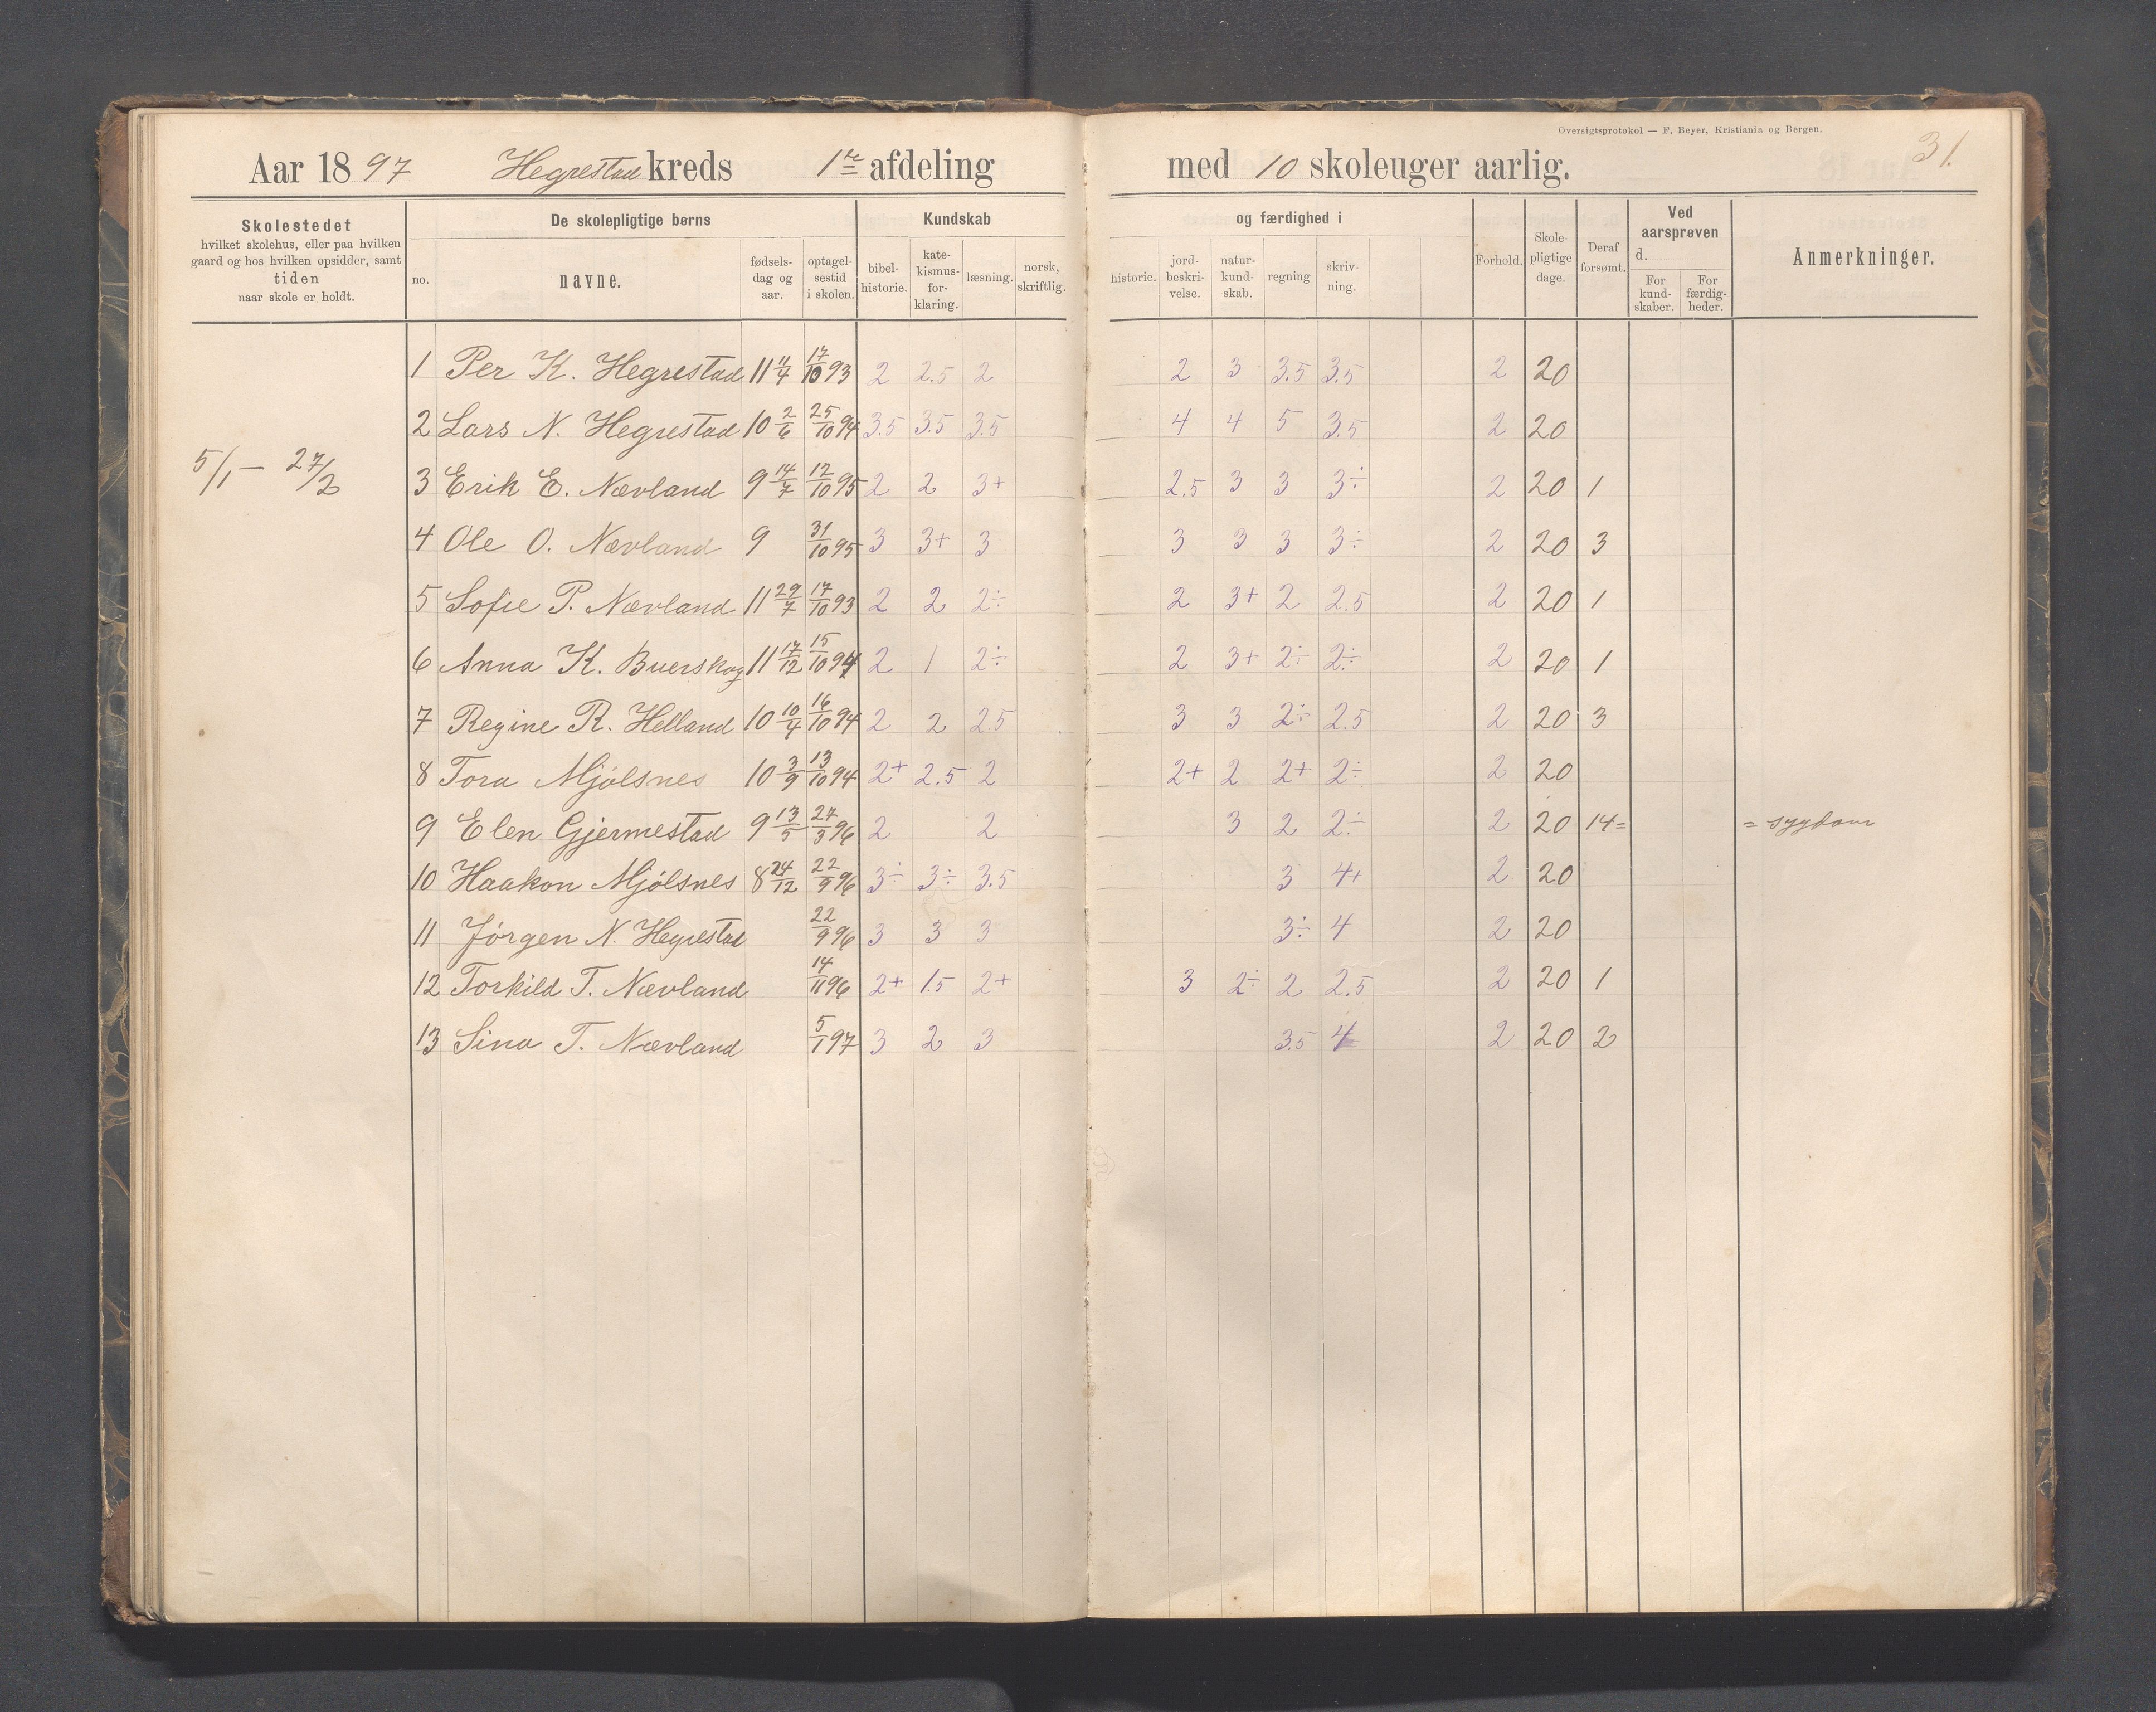 Oversigtsprotokol — F. Beyer, Kristiania og Bergen.
31.
Aar 1897 Hegrestad kreds 1ste afdeling med 10 skoleuger aarlig.
Skolestedet
hvilket skolehus, eller paa hvilken
gaard og hos hvilken opsidder, samt
tiden
naar skole er holdt.
De skolepligtige børns
no.
navne.
fødsels-
dag og
aar.
optagel-
sestid
i skolen.
Kundskab
bibel-
historie.
kate-
kismus-
for-
klaring.
læsning.
norsk,
skriftlig.
og færdighed i
historie.
jord-
beskri-
velse.
natur-
kund-
skab.
regning
skriv-
ning.
Forhold.
Skole-
pligtige
dage.
Deraf
forsømt.
Ved
aarsprøven
d.
For
kund-
skaber.
For
færdig-
heder.
Anmerkninger.
5/1 — 27/2
1 Per K. Hegrestad 11 11/4 17/10 93 2 2.5 2 2 3 3.5 3.5 2 20
2 Lars N. Hegrestad 10 2/6 25/10 94 3.5 3.5 3.5 4 4 5 3.5 2 20
3 Erik E. Nævland 9 14/7 12/10 95 2 2 3+ 2.5 3 3 3÷ 2 20 1
4 Ole O. Nævland 9 31/10 95 3 3+ 3 3 3 3 3÷ 2 20 3
5 Sofie P. Nævland 11 29/7 17/10 93 2 2 2÷ 2 3+ 2 2.5 2 20 1
6 Anna K. Buerskog 11 17/12 15/10 94 2 1 2÷ 2 3+ 2÷ 2÷ 2 20 1
7 Regine R. Helland 10 10/4 16/10 94 2 2 2.5 3 3 2÷ 2.5 2 20 3
8 Tora Mjølsnes 10 3/9 13/10 94 2+ 2.5 2 2+ 2 2+ 2÷ 2 20
9 Elen Gjermestad 9 13/5 27/3 96 2 2 3 2 2÷ 2 20 14= = sygdom
10 Haakon Mjølsnes 8 24/12 22/9 96 3÷ 3÷ 3.5 3 4+ 2 20
11 Jørgen N. Hegrestad 22/9 96 3 3 3 3÷ 4 2 20
12 Torkild T. Nævland 14/11 96 2+ 1.5 2+ 3 2÷ 2 2.5 2 20 1
13 Sina T. Nævland 5/1 97 3 2 3 3.5 4 2 20 2